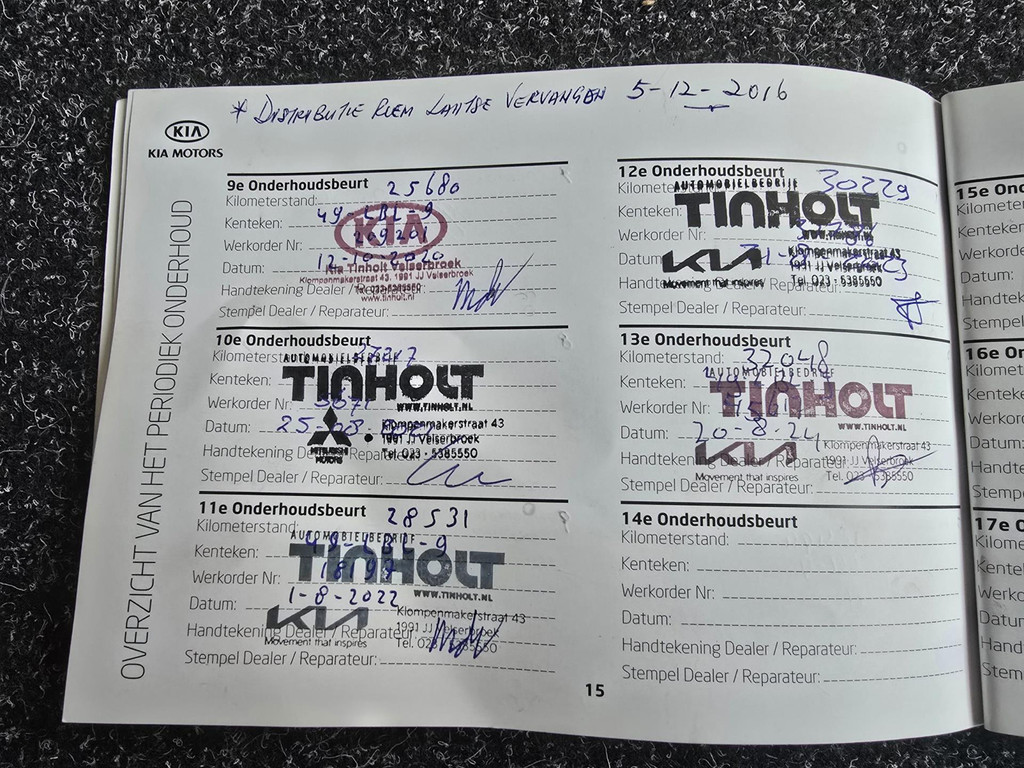 * DISTRIBUTIE RIEM LAATSE VERVANGEN 5-12-2016
KIA
KIA MOTORS
OVERZICHT VAN HET PERIODIEK ONDERHOUD
9e Onderhoudsbeurt
Kilometerstand: 25680
Kenteken: 49-LBL-9
Werkorder Nr: 209201
Datum: 12-10-2020
Handtekening Dealer / Reparateur:
Stempel Dealer / Reparateur:
KIA
Kia Tinholt Velserbroek
Klompenmakerstraat 43, 1991 JJ Velserbroek
Tel. 023-5385550
www.tinholt.nl
10e Onderhoudsbeurt
Kilometerstand:
Kenteken:
Werkorder Nr: 3071
Datum: 25-08-
Handtekening Dealer / Reparateur:
Stempel Dealer / Reparateur:
AUTOMOBIELBEDRIJF
TINHOLT
WWW.TINHOLT.NL
MITSUBISHI MOTORS
Klompenmakerstraat 43
1991 JJ Velserbroek
Tel. 023 - 5385550
11e Onderhoudsbeurt
Kilometerstand: 28531
Kenteken: 49-LBL-9
Werkorder Nr: 18197
Datum: 1-8-2022
Handtekening Dealer / Reparateur:
Stempel Dealer / Reparateur:
AUTOMOBIELBEDRIJF
TINHOLT
WWW.TINHOLT.NL
KIA
Movement that inspires
Klompenmakerstraat 43
1991 JJ Velserbroek
Tel. 023 - 5385550
12e Onderhoudsbeurt
Kilometerstand: 30229
Kenteken:
Werkorder Nr:
Datum:
Handtekening Dealer / Reparateur:
Stempel Dealer / Reparateur:
AUTOMOBIELBEDRIJF
TINHOLT
WWW.TINHOLT.NL
KIA
Movement that inspires
Klompenmakerstraat 43
1991 JJ Velserbroek
Tel. 023 - 5385550
13e Onderhoudsbeurt
Kilometerstand: 32048
Kenteken:
Werkorder Nr:
Datum: 20-8-24
Handtekening Dealer / Reparateur:
Stempel Dealer / Reparateur:
AUTOMOBIELBEDRIJF
TINHOLT
WWW.TINHOLT.NL
KIA
Movement that inspires
Klompenmakerstraat 43
1991 JJ Velserbroek
Tel. 023 - 5385550
14e Onderhoudsbeurt
Kilometerstand:
Kenteken:
Werkorder Nr:
Datum:
Handtekening Dealer / Reparateur:
Stempel Dealer / Reparateur:
15
15e On
Kilometer
Kenteken
Werkorde
Datum:
Handtek
Stempel
16e On
Kilomet
Kenteke
Werkord
Datum:
Handtek
Stempe
17e O
Kilome
Kentek
Werko
Datur
Hand
Stem